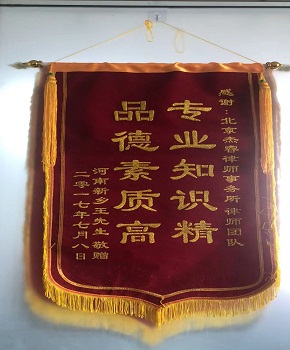 感谢：北京杰睿律师事务所律师团队
专业知识精
品德素质高
河南新乡王先生 敬赠
二零一七年七月八日